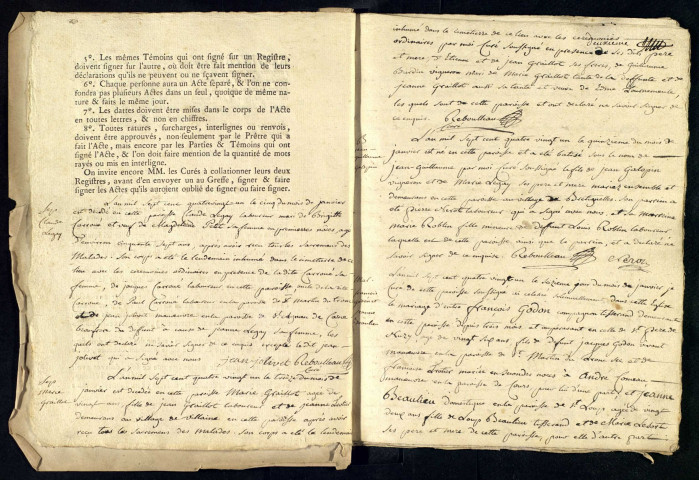 5°. Les mêmes Témoins qui ont signé sur un Registre,
doivent signer sur l'autre, où doit être fait mention de leurs
déclarations qu'ils ne peuvent ou ne sçavent signer.
6°. Chaque personne aura un Acte séparé, & l'on ne con-
fondra pas plusieurs Actes dans un seul, quoique de même na-
ture & faits le même jour.
7°. Les dattes doivent être mises dans le corps de l'Acte
en toutes lettres, & non en chiffres.
8°. Toutes ratures, surcharges, interlignes ou renvois,
doivent être approuvés, non-seulement par le Prêtre qui a
fait l'Acte, mais encore par les Parties & Témoins qui ont
signé l'Acte, & l'on doit faire mention de la quantité de mots
rayés ou mis en interligne.
On invite encore MM. les Curés à collationner leurs deux
Registres, avant d'en envoyer un au Greffe, signer & faire
signer les Actes qu'ils auroient oublié de signer ou faire signer.
L'an mil sept cent quatre vingt un le cinq du mois de janvier
est décédé en cette paroisse Claude Legay laboureur mari de Brigitte
Carroué et veuf de Magdeleine Petit sa femme en premieres nôces agé
d'environ cinquante sept ans, après avoir reçu tous les Sacremens des
Malades. Son corps a été le lendemain inhumé dans le cimetiere de ce
lieu avec les ceremonies ordinaires en presence de la dite Carroué sa
femme, de jacques Carroué laboureur en cette paroisse oncle de la dite
Carroué, de Paul Carroué laboureur en la paroisse de St Martin
de jean jolivet manœuvre en la paroisse de St Aignan
beaufrere du deffunt a cause de jeanne Legay sa femme, les
quels ont declaré ne savoir signer de ce enquis, excepté le dit jean
jolivet qui a signé avec nous jean jolivet Reboulleau
Curé
L'an mil sept cent quatre vingt un le treize du mois de
janvier est décédée en cette paroisse Marie Graillot agée de
vingt ans fille de jean Graillot laboureur et de jeanne
demeurans au village de Villaine en cette paroisse apres avoir
reçu tous les Sacremens des malades. Son corps a été le lendemain
inhumé dans le cimetiere de ce lieu avec les ceremonies
ordinaires par moi Curé soussigné en presence de ses dits pere
et mere, d'Etienne et de jean Graillot ses freres, de Guillaume
Bourdin vigneron mari de Marie Graillot tante de la deffunte et de
jeanne Graillot aussi sa tante et veuve de
les quels sont de cette paroisse et ont declaré ne savoir signer de
ce enquis. Reboulleau
Curé
L'an mil sept cent quatre vingt un le quinzieme du mois de
janvier est né en cette paroisse et a été batisé sous le nom de
jean Guillaume par moi Curé soussigné le fils de jean
vigneron et de Marie Legay ses pere et mere mariés ensemble et
demeurans en cette paroisse au village de son parrein a
été Pierre Nerot laboureur qui a signé avec nous, et la marreine
marie Roblin fille mineure de deffunt Louis Roblin laboureur
laquelle est de cette paroisse ainsi que le parrein, et a declaré ne
savoir signer de ce enquise. Reboulleau Nerot
L'an mil sept cent quatre vingt un le seizieme jour du mois de janvier je
Curé de cette paroisse soussigné ai celebré solemnellement dans cette Eglise
le mariage d'entre François Godon compagnon tisserand demeurant
en cette paroisse depuis trois mois et auparavant en celle de St Pere de
agé de vingt sept ans, fils de deffunt jacques Godon vivant
manœuvre en la paroisse de St Martin et de
mariée en secondes noces de André
manœuvre en la paroisse de pour lui d'une part; et jeanne
Beaulieu domestique en la paroisse de St Loup agée de vingt
deux ans fille de Loup Beaulieu tisserand et de Marie
ses pere et mere de cette paroisse, pour elle d'autre part